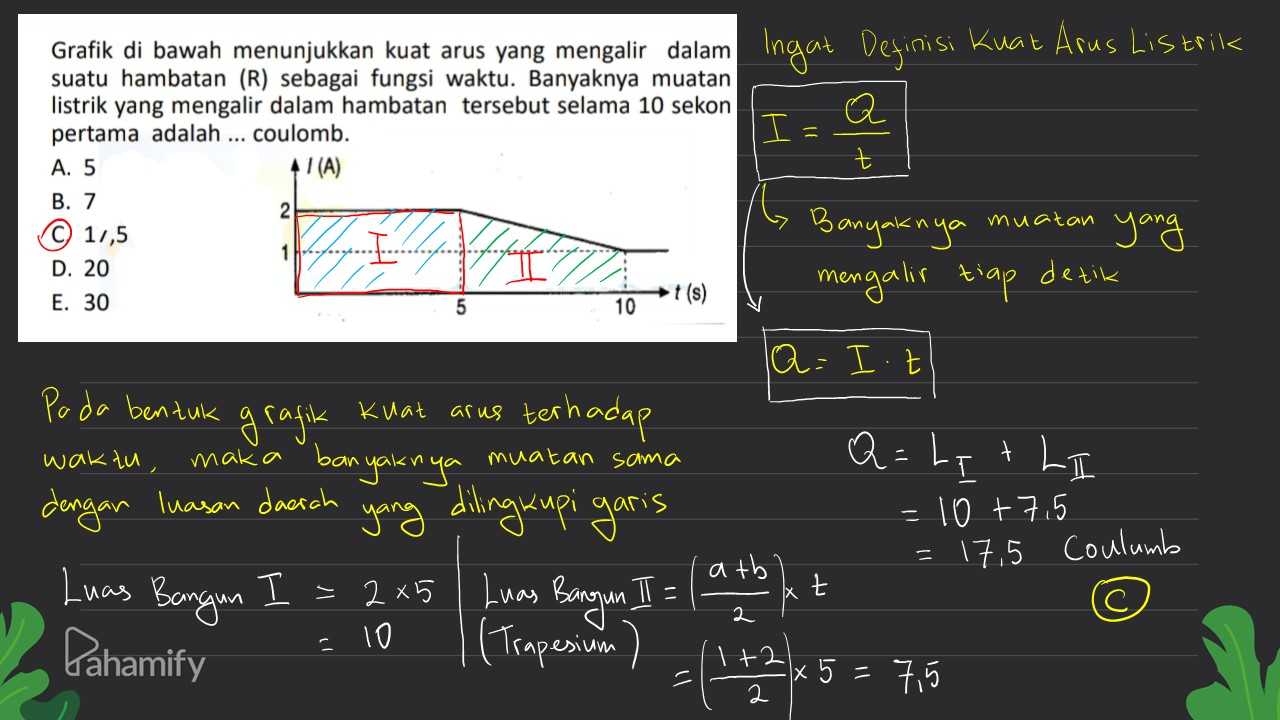 Grafik di bawah menunjukkan kuat arus yang mengalir dalam
suatu hambatan (R) sebagai fungsi waktu. Banyaknya muatan
listrik yang mengalir dalam hambatan tersebut selama 10 sekon
pertama adalah ... coulomb.
A. 5
B. 7
C. 17,5
D. 20
E. 30
I (A)
2
1
I
II
5
10
t (s)
Ingat Definisi Kuat Arus Listrik
I = Q/t
Banyaknya muatan yang
mengalir tiap detik
Q = I . t
Pada bentuk grafik kuat arus terhadap
waktu, maka banyaknya muatan sama
dengan luasan daerah yang dilingkupi garis
Luas Bangun I = 2 x 5
= 10
Luas Bangun II = (a+b/2) x t
(Trapesium)
= (1+2/2) x 5 = 7,5
Q = L I + L II
= 10 + 7,5
= 17,5 Coulumb
C
Pahamify